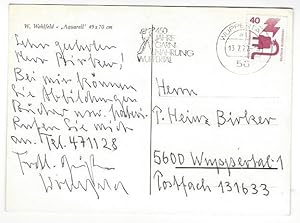 W. Wohlfeld - „Aquarell" 49x70 cm
Sehr geehrter
Herr Birker!
Bei mir können
Sie Abbildungen
Bücher usw.
Rufen Sie mich
an. Tel. 471128
Frdl.
450
JAHRE
GARN
NAHRUNG
WUPPERTAL
WUPPERTAL
13.7.77
56
40
Herrn
P. Heinz Birker
5600 Wuppertal-1
Postfach 131633